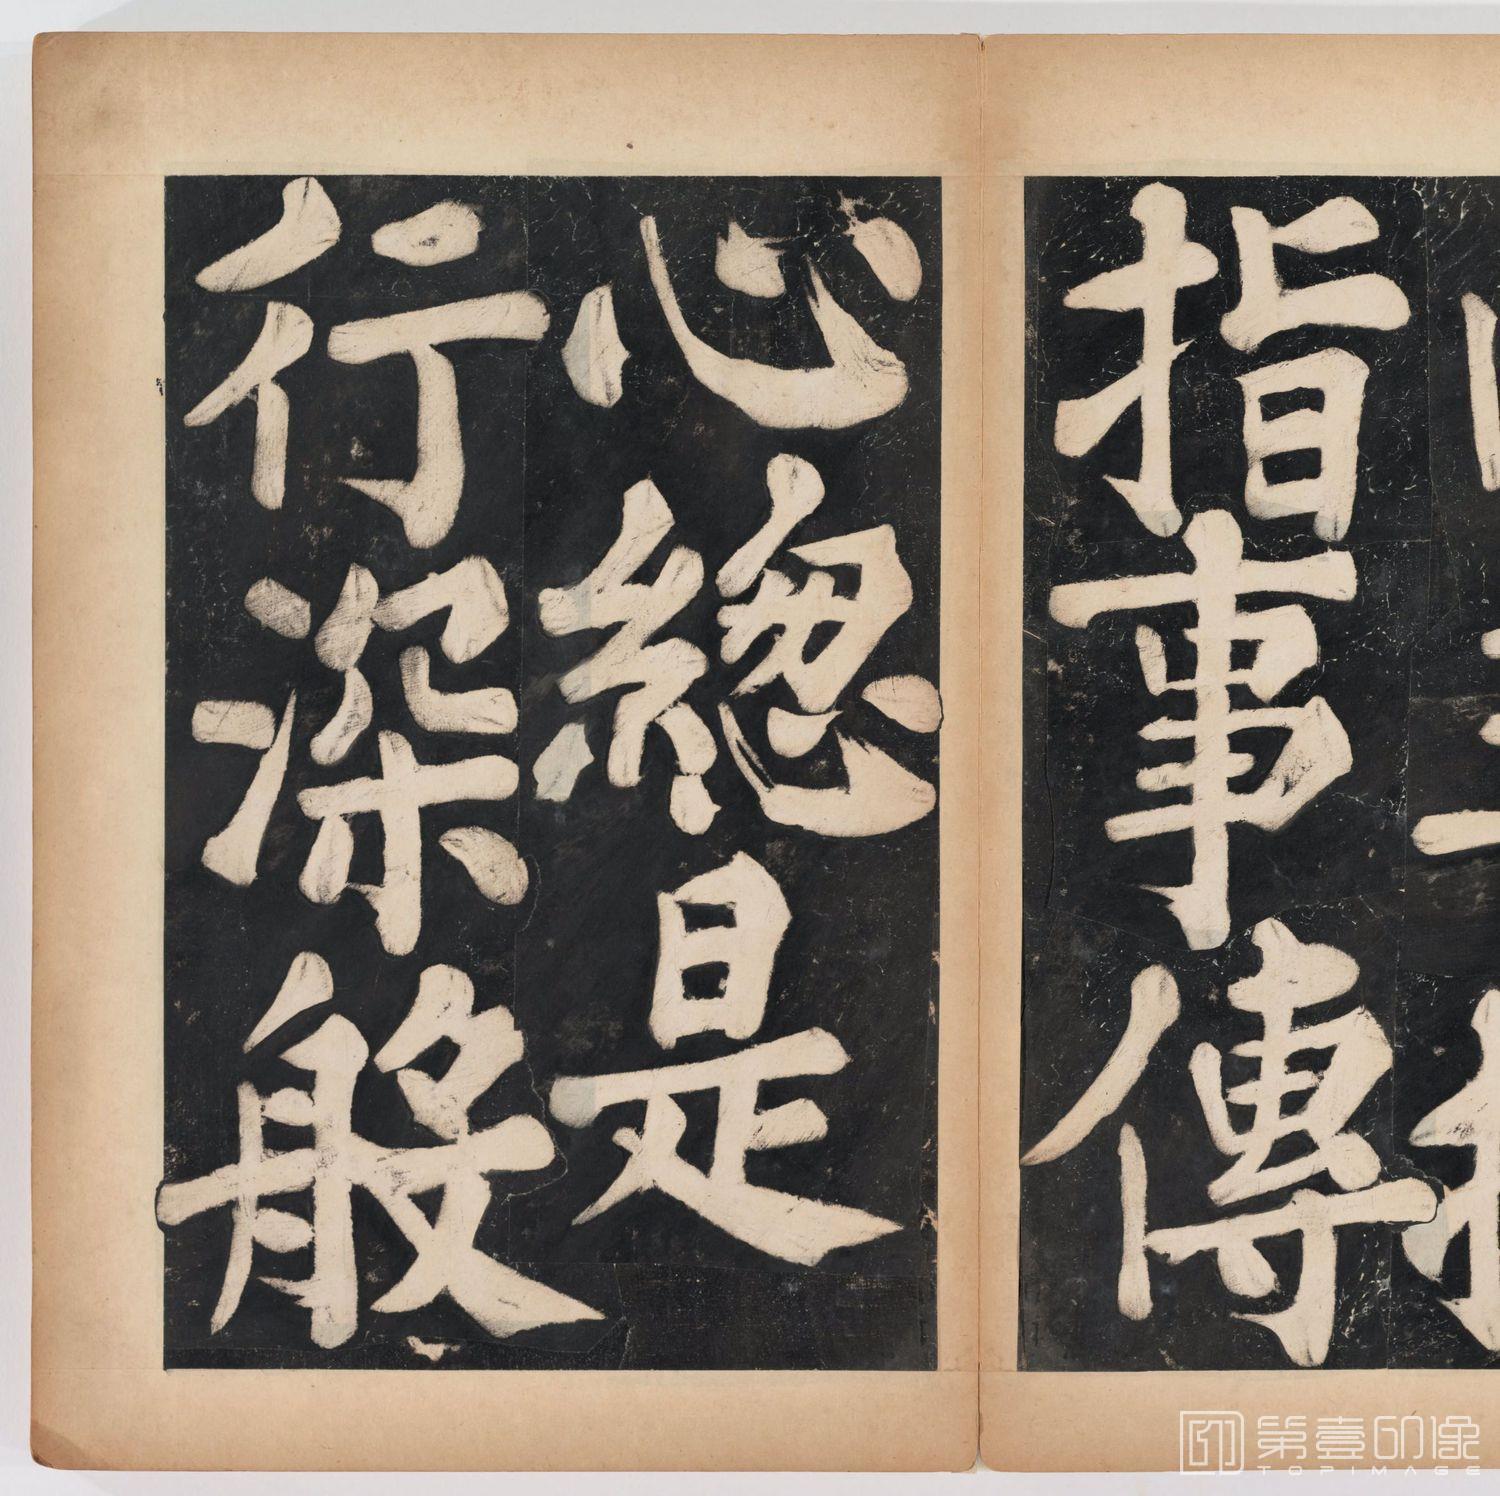 指事傳
心總是
行深般
第壹印像
TOPIMAGE